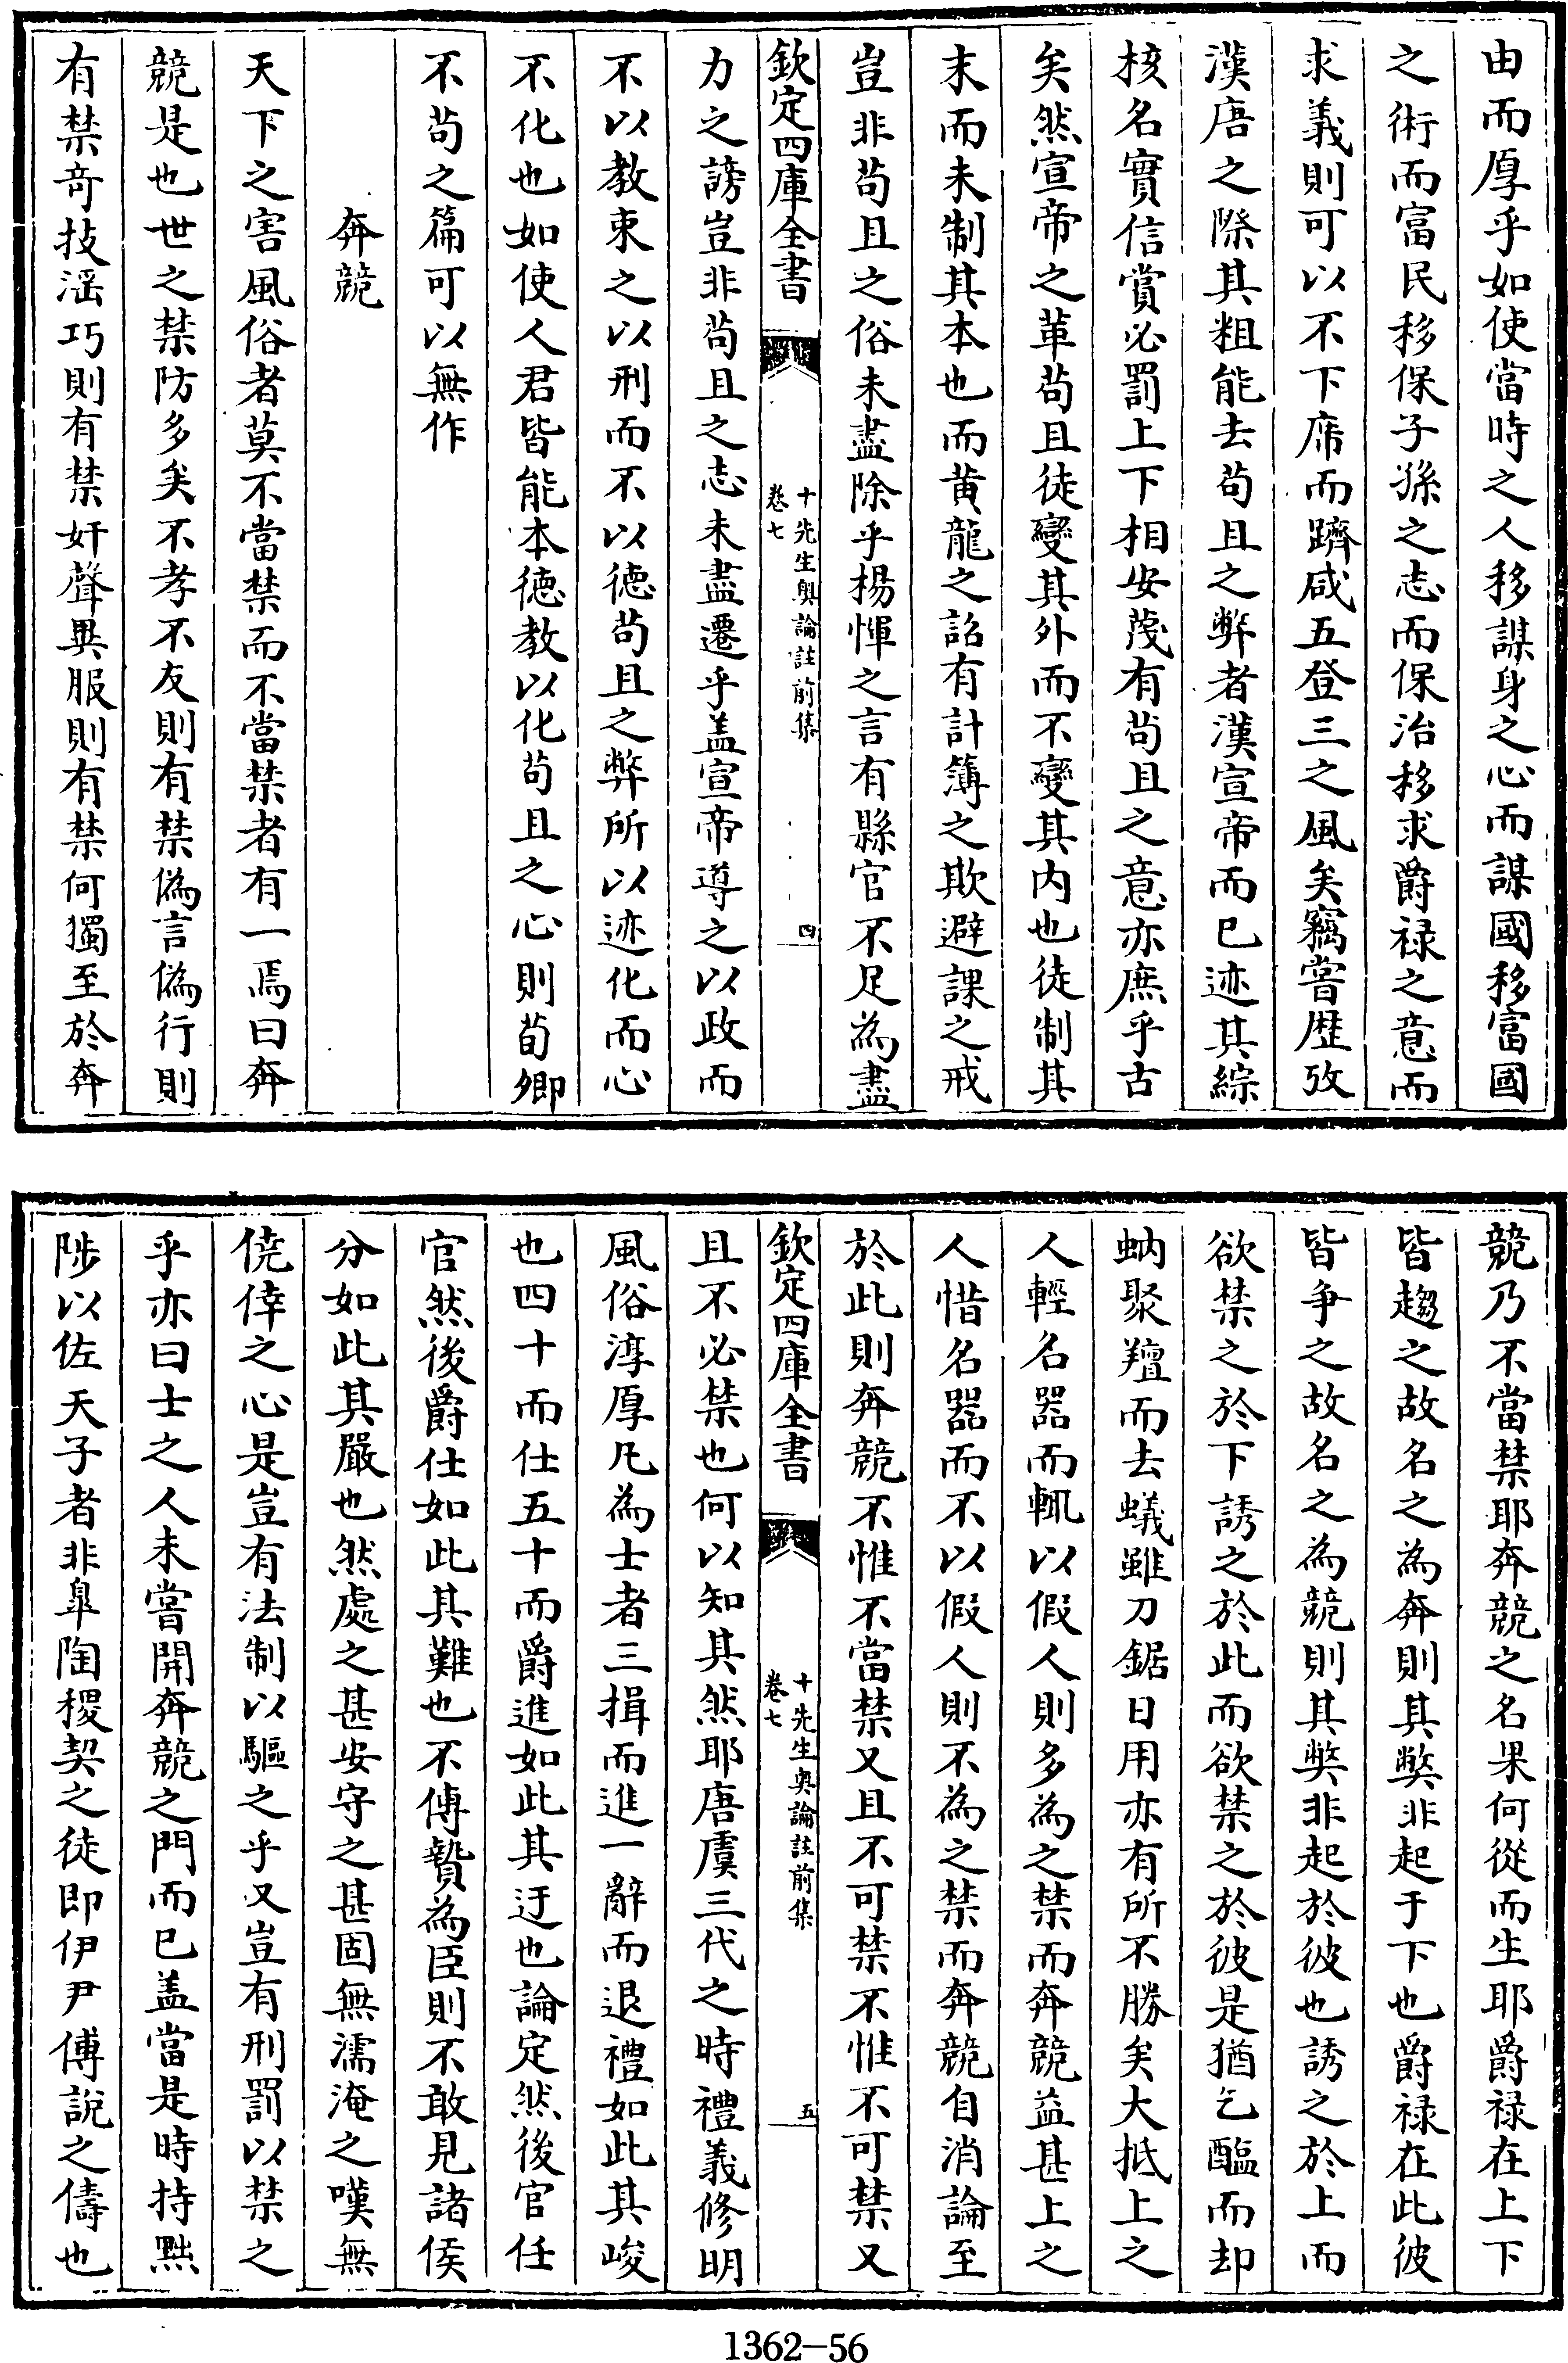 由而厚乎如使當時之人移謀身之心而謀國移富國
之術而富民移保子孫之志而保治移求爵禄之意而
求義則可以不下席而躋咸五登三之風矣竊嘗歴攷
漢唐之際其粗能去苟且之弊者漢宣帝而已迹其綜
核名實信賞必罰上下相安蔑有苟且之意亦庶乎古
矣然宣帝之革苟且徒變其外而不變其内也徒制其
末而未制其本也而黄龍之詔有計簿之欺避課之戒
豈非苟且之俗未盡除乎楊惲之言有縣官不足為盡
欽定四庫全書
十先生奥論註前集
卷七
四
力之謗豈非苟且之志未盡遷乎盖宣帝導之以政而
不以教束之以刑而不以徳苟且之弊所以迹化而心
不化也如使人君皆能本徳教以化苟且之心則荀卿
不苟之篇可以無作
奔競
天下之害風俗者莫不當禁而不當禁者有一焉曰奔
競是也世之禁防多矣不孝不友則有禁偽言偽行則
有禁奇技滛巧則有禁奸聲異服則有禁何獨至於奔
競乃不當禁耶奔競之名果何從而生耶爵禄在上下
皆趨之故名之為奔則其弊非起于下也爵禄在此彼
皆爭之故名之為競則其弊非起於彼也誘之於上而
欲禁之於下誘之於此而欲禁之於彼是猶乞醯而却
蚋聚羶而去蟻雖刀鋸日用亦有所不勝矣大抵上之
人輕名器而輒以假人則多為之禁而奔競益甚上之
人惜名器而不以假人則不為之禁而奔競自消論至
於此則奔競不惟不當禁又且不可禁不惟不可禁又
欽定四庫全書
十先生奥論註前集
卷七
五
且不必禁也何以知其然耶唐虞三代之時禮義修明
風俗淳厚凡為士者三揖而進一辭而退禮如此其峻
也四十而仕五十而爵進如此其迂也論定然後官任
官然後爵仕如此其難也不傅贄為臣則不敢見諸侯
分如此其嚴也然處之甚安守之甚固無濡淹之嘆無
僥倖之心是豈有法制以驅之乎又豈有刑罰以禁之
乎亦曰士之人未嘗開奔競之門而已盖當是時持黜
陟以佐天子者非臯陶稷契之徒即伊尹傅說之儔也
1362-56